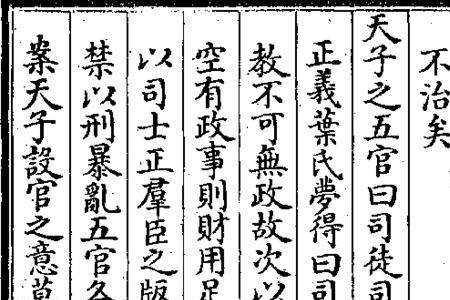 不治矣
天子之五官曰司徒司
正義葉氏夢得曰司
教不可無政故次以
空有政事則財用足
以司士正羣臣之版
禁以刑暴亂五官各
案天子設官之意莫